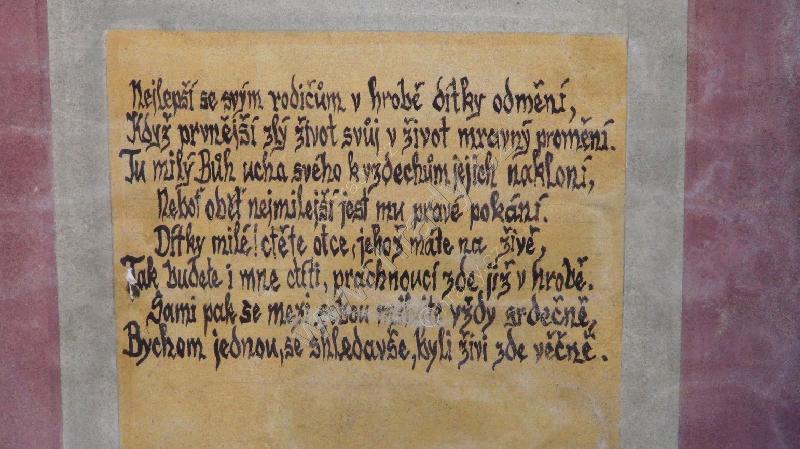 Nejlepší se svým rodičům v hrobě dítky odmění,
Když prvnější zlý život svůj v život mravný promění.
Tu milý Bůh ucha svého k vzdechům jejich nakloní,
Neboť oběť nejmilejší jesť mu pravé pokání.
Dítky milé! ctěte otce, jehož máte na živě,
Tak budete i mne ctíti, práchnoucí zde již v hrobě.
Sami pak se mezi sebou vždy srdečně,
Bychom jednou, se shledavše, byli živi zde věčně.